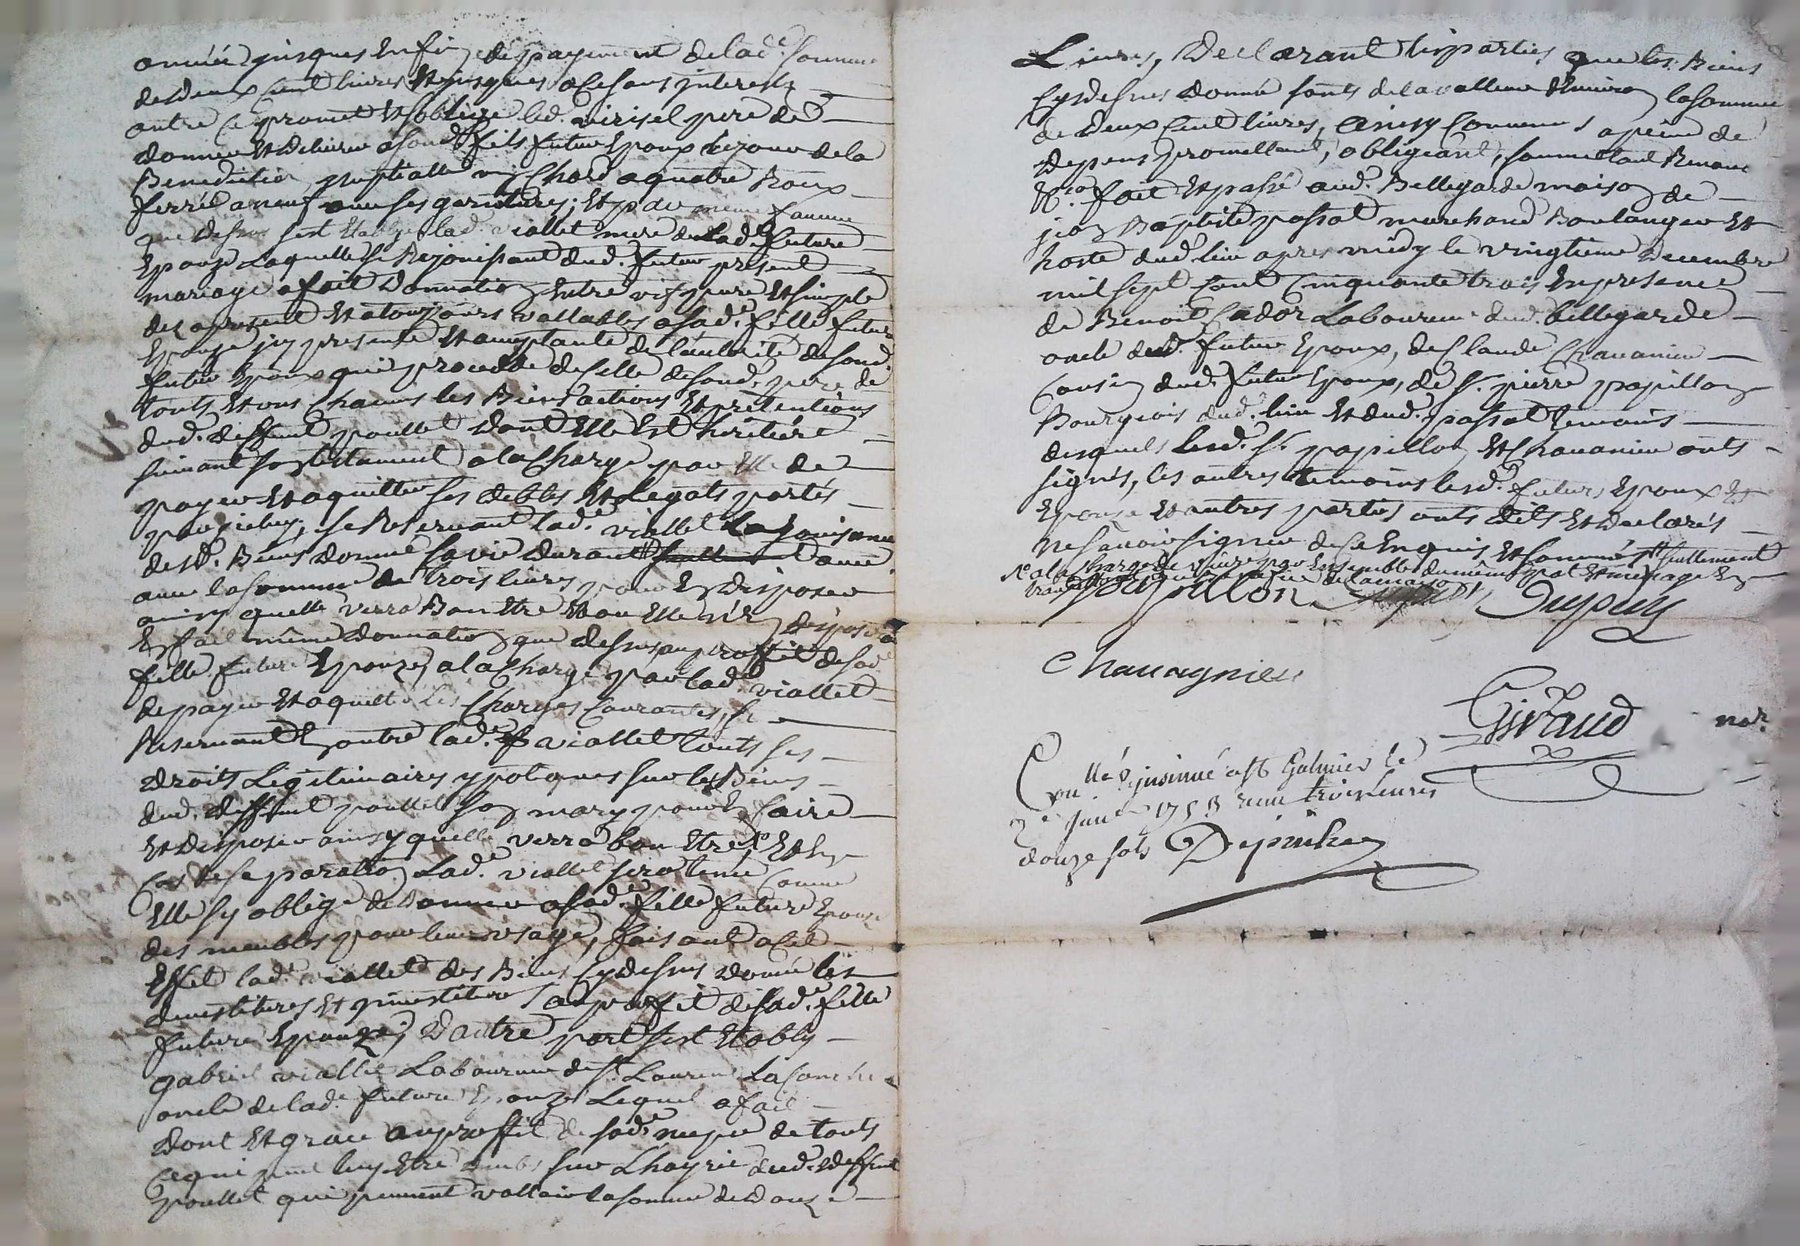 année jusques enfin de payement de lad.e somme
de deux cent livres et jusques a ce sans interests
outre ce promet et soblige led. virisel pere de
donner et delivrer a sond. fils futur epoux le jour de la
Benediction nuptialle un Chard a quatre Roux
ferré a neuf avec ses garnitures; et par meme
que dessus sest etablye lad. viallet mere de lad.e future
Epouze laquelle se Rejouissant dud. futur present
mariage a fait Donnation entre vifs pure et simple
dez apresent et atoujours vallables a sad.e fille future
Epouze icy presente et aceptante de lautorité de sond.
futur epoux qui procedde de celle de sond. pere de
touts et uns Chacuns les Biens actions et pretentions
dud. deffunt pouillet dont elle est heritiere
suivant son testament a la Charge par elle de
payer et aquitter ses debtes et Legats portés
par icelluy, se Reservant lad.e viallet La jouissance
desd. Biens donné sa vie durant avec
avec la somme de trois livres pour en disposer
ainsy quelle verra Bon etre et ou elle nen disposera
en fait même donnation que dessus au proffit de sad.e
fille future epouze, a la Charge par lad.e viallet
de payer et aquitter les Charges Courantes, se
Reservant en outre lad.e viallet touts ses
droits Legitimaires ypoteques sur les Biens
dud. deffunt pouillet son mary pour en faire
et disposer ainsy quelle verra bon etre, et en
Cas de separation lad.e viallet sera tenue Comme
elle sy oblige de donner a sad.e fille future epouse
des meubles pour leur usage, faisant a cet
effet lad.e viallet des Biens cy dessus donné les
demestitures et jnvestitures au proffit de sad.e fille
future epouze; D'autre part sest etably
gabriel viallet Laboureur de St. Laurent La Conche
oncle de lad.e future epouze Lequel a fait
Dont et grace au proffit de sad.e niepce de touts
ce qui peut luy etre dubs sur L'hoyrie dud. deffunt
pouillet qui peuvent vallair la somme de douze
Livres, Declarant les parties que les Biens
cy dessus donné sonts de la valleur denviron la somme
de deux cent livres, ainsy Convenu a peine de
depens promettant, obligeant, soumettant Renonc
&c.a fait et passé aud. Bellegarde maison de
jean Baptiste passot marchand Boulanger et
hoste dud. lieu apres midy le vingtieme Decembre
mil sept cent Cinquante trois en presence
de Benoit Cador Laboureur dud. bellegarde
oncle dud. futur epoux, de Claude Chavanieu
Cousin dud. futur epoux, de S.r pierre papillon
Bourgeois dud. lieu et dud. passot temoins
desquels lesd. S.r papillon et Chavanieu onts
signés, les autres temoins lesd. futurs epoux et
Epouse et autres parties onts dits et declarés
ne sçavoir signer de ce enquis et sommés seullement
a la Charge de vivre par ensemble du même pot et menage en
papillon Dupuy
Chavagnieu
Giraud no.re
Con.llé & jnsinué a St Galmier le
janv. 1754 Reçu trois livres
douze sols